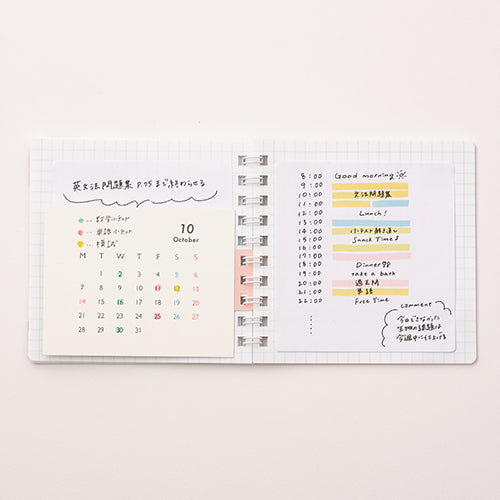 英文法問題集 P.75まで終わらせる
…数学小テスト
…単語小テスト
…模試
10
October
M T W T F S S
1 2 3 4 5 6
7 8 9 10 11 12 13
14 15 16 17 18 19 20
21 22 23 24 25 26 27
28 29 30 31
8:00 Good morning
9:00
10:00 文法問題集
11:00
12:00 Lunch!
13:00
14:00 小テスト解き直し
15:00 Snack Time♪
16:00
17:00
18:00 Dinner
19:00 take a bath
20:00 過去問
21:00 単語
22:00 Free Time
comment
今日できなかった
生物の課題は
今週中に仕上げる